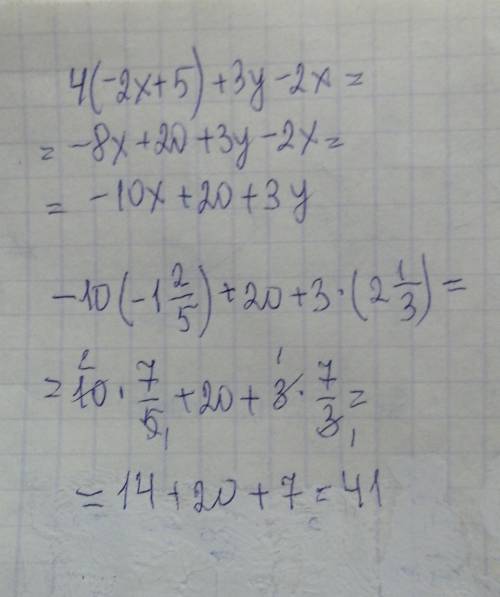 4(-2x+5)+3y-2x=
= -8x+20+3y-2x=
= -10x+20+3y
-10(-1 2/5)+20+3·(2 1/3)=
= 10· 7/5 +20+3· 7/3 =
= 14+20+7=41